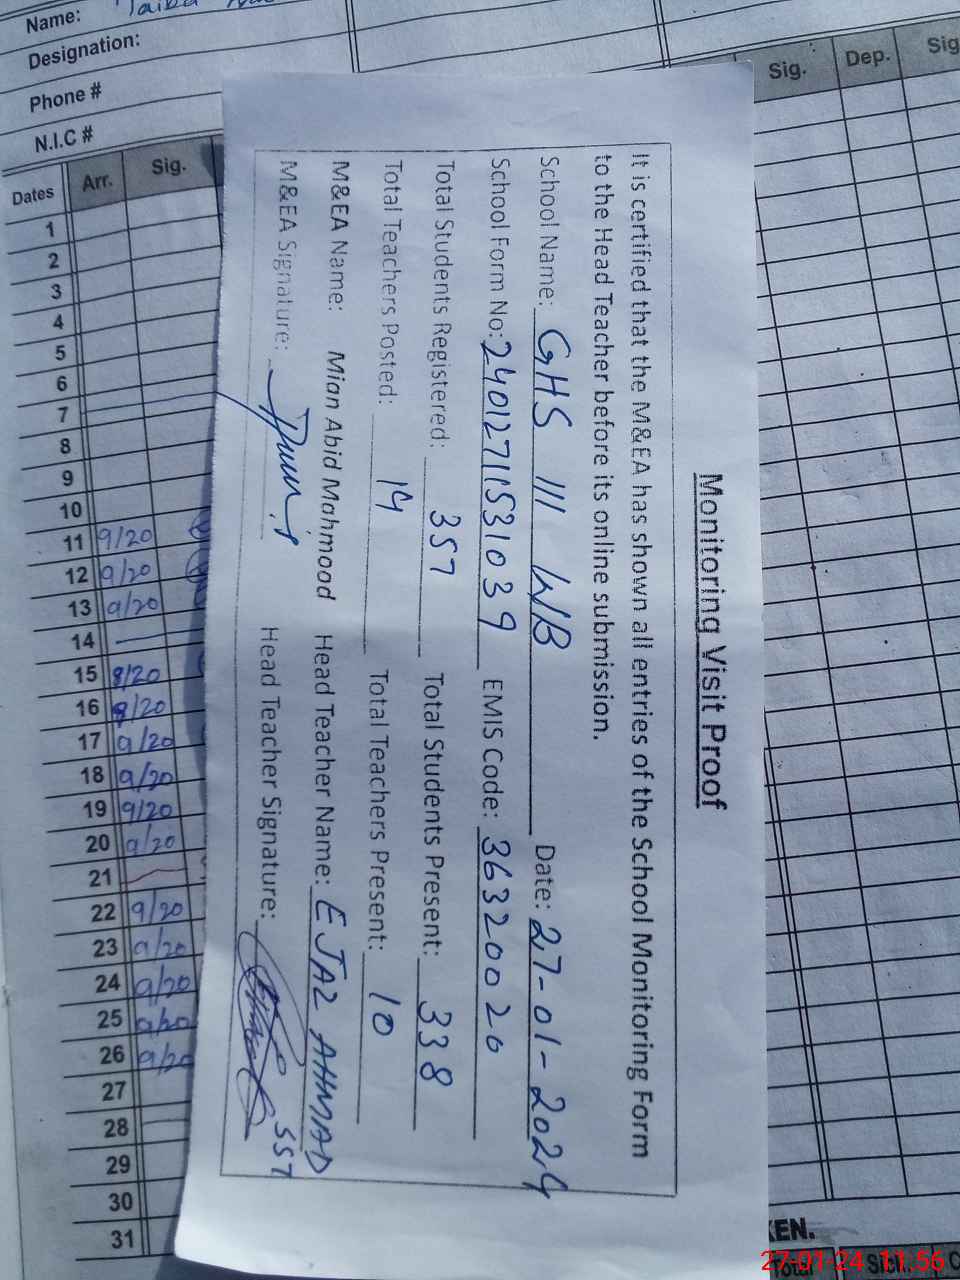 Name:
Designation:
Phone #
N.I.C #
Dates Arr. Sig.
Sig. Dep. Sig.
1
2
3
4
5
6
7
8
9
10
11 9/20
12 9/20
13 9/20
14
15 8/20
16 8/20
17 9/20
18 9/20
19 9/20
20 9/20
21
22 9/20
23 9/20
24 9/20
25 9/20
26 9/20
27
28
29
30
31
Monitoring Visit Proof
It is certified that the M&EA has shown all entries of the School Monitoring Form
to the Head Teacher before its online submission.
School Name: GHS 111 WB Date: 27-01-2024
School Form No: 24012711531039 EMIS Code: 36320020
Total Students Registered: 357 Total Students Present: 338
Total Teachers Posted: 14 Total Teachers Present: 10
M&EA Name: Mian Abid Mahmood Head Teacher Name: EJAZ AHMAD
M&EA Signature: Head Teacher Signature: SST
KEN.
Total Sick.
27-01-24 11:56